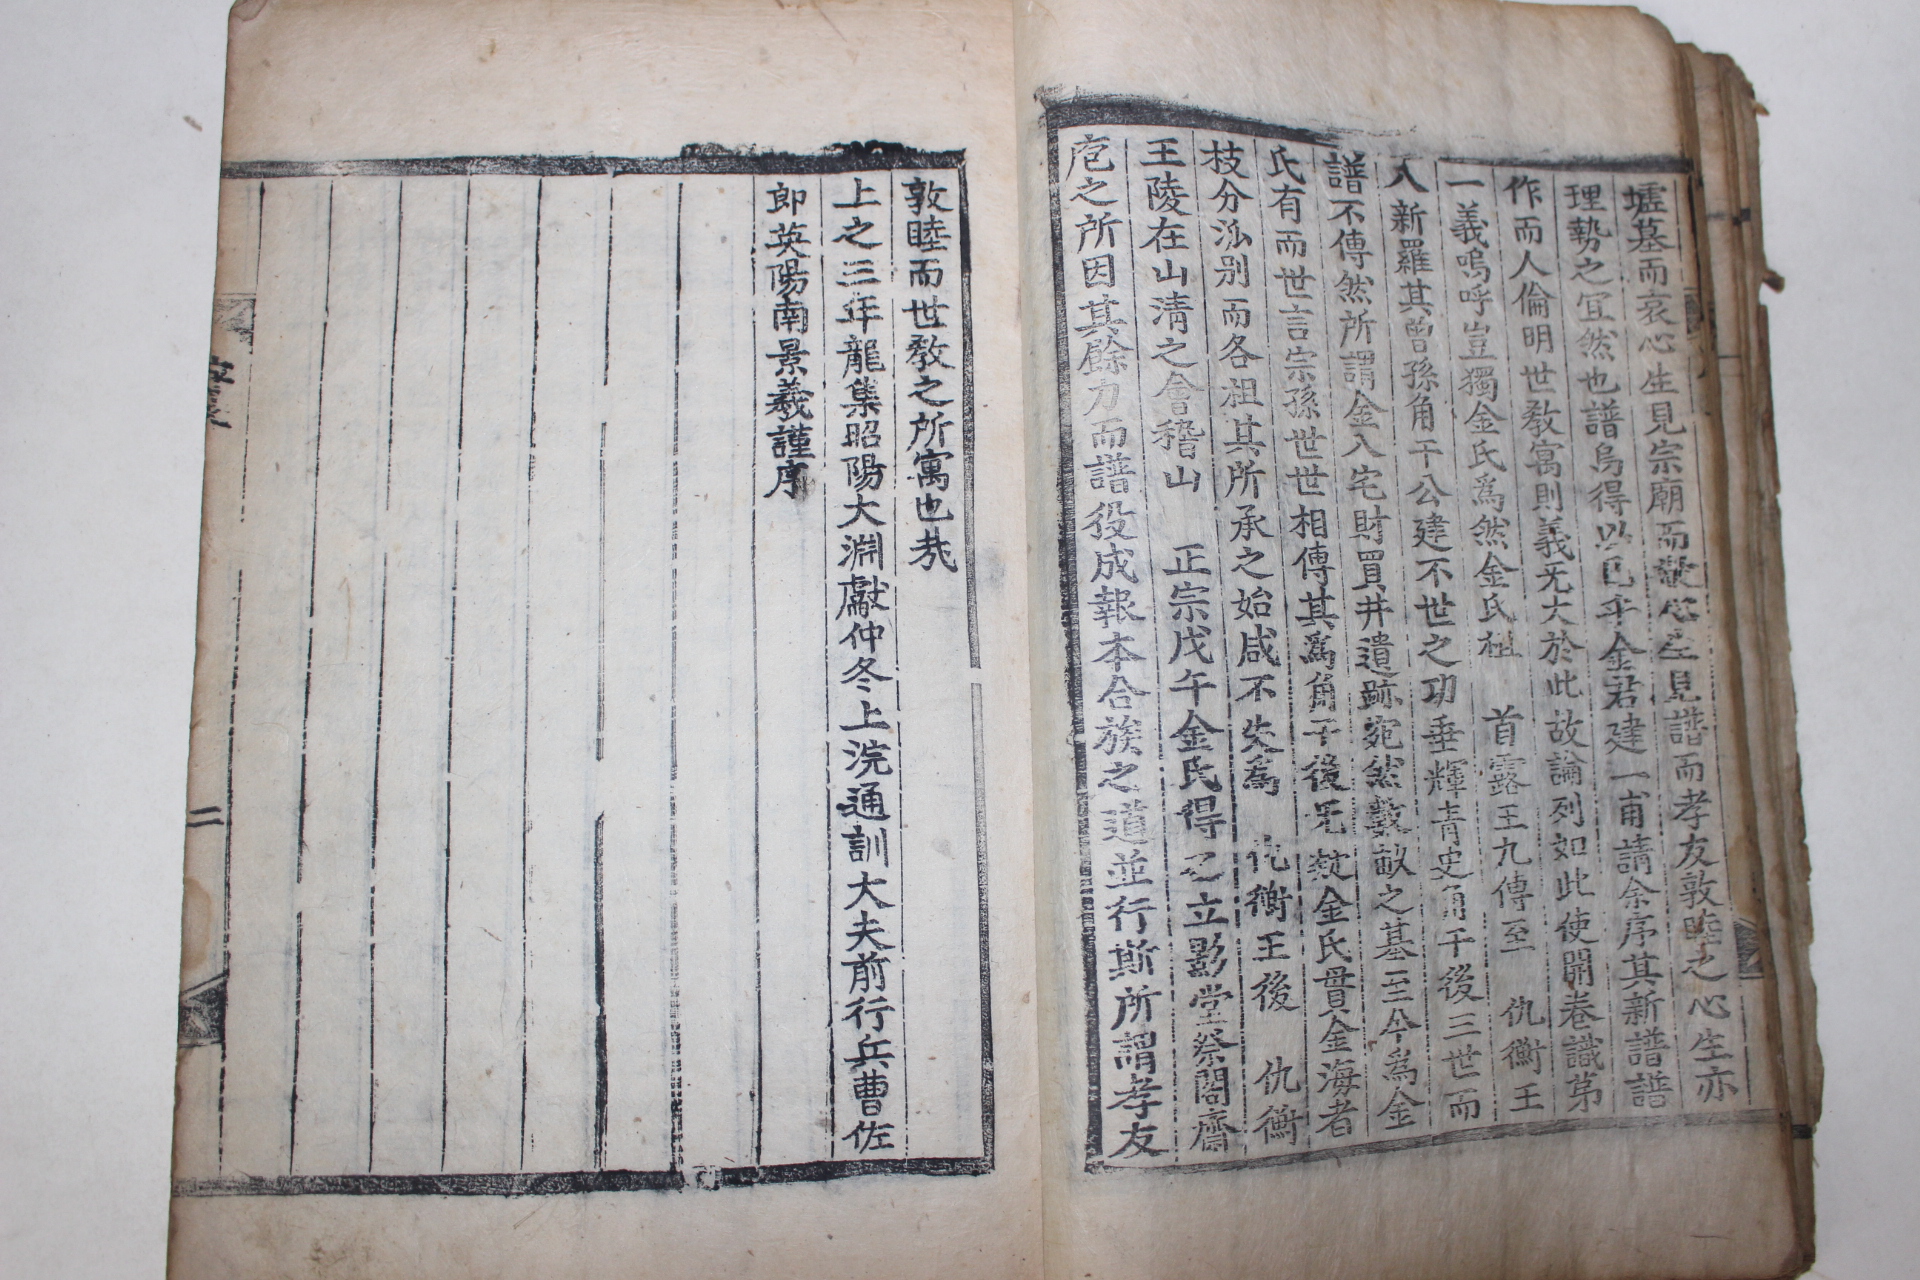 墟墓而哀心生見宗廟而敬心生見譜而孝友敦睦之心生亦
理勢之宜然也譜烏得以已乎金君建一甫請余序其新譜譜
作而人倫明世教寓則義旡大於此故論列如此使開卷識苐
一義嗚呼豈獨金氏爲然金氏祖 首露王九傳至 仇衡王
入新羅其曾孫角干公建不世之功垂輝青史角干後三世而
譜不傳然所謂金入宅財買井遺跡宛然數畝之墓至今爲金
氏有而世言宗孫世世相傳其爲角干後旡疑金氏貫金海者
枝分泒別而各祖其所承之始咸不失爲 仇衡王後 仇衡
王陵在山淸之會稽山 正宗戊午金氏得之立影堂祭閣齋
庖之所因其餘力而譜役成報本合族之道並行斯所謂孝友
敦睦而世教之所寓也㢤
上之三年龍集昭陽大淵獻仲冬上浣通訓大夫前行兵曹佐
郎英陽南景羲謹序
二